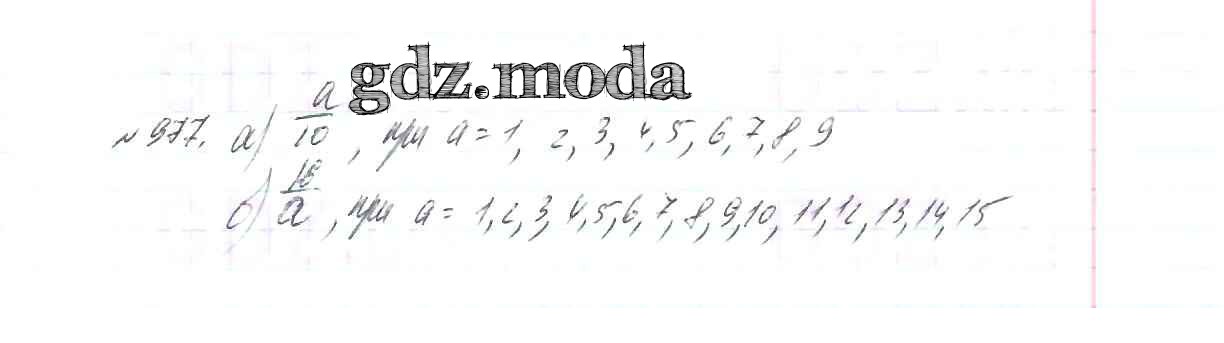 gdz.moda
№977. а) a/10, при a = 1, 2, 3, 4, 5, 6, 7, 8, 9
б) 16/a, при a = 1, 2, 3, 4, 5, 6, 7, 8, 9, 10, 11, 12, 13, 14, 15